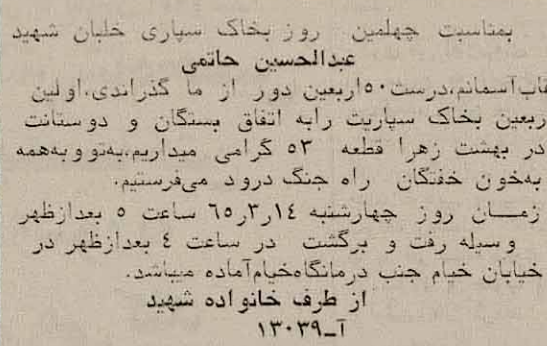 بمناسبت چهلمین روز بخاک سپاری خلبان شهید
عبدالحسین حاتمی
قاب‌آسمانم،درست ۵۰ اربعین دور از ما گذراندی،اولین
ربعین بخاک سپاریت رابه اتفاق بستگان و دوستانت
در بهشت زهرا قطعه ۵۳ گرامی میداریم،به‌تو وبه‌همه
به‌خون خفتگان راه جنگ درود می‌فرستیم.
زمان روز چهارشنبه ۱۴ر۳ر۶۵ ساعت ۵ بعدازظهر
وسیله رفت و برگشت در ساعت ۴ بعدازظهر در
خیابان خیام جنب درمانگاه‌خیام‌آماده میباشد.
از طرف خانواده شهید
آ‌ـ۱۳۰۳۹